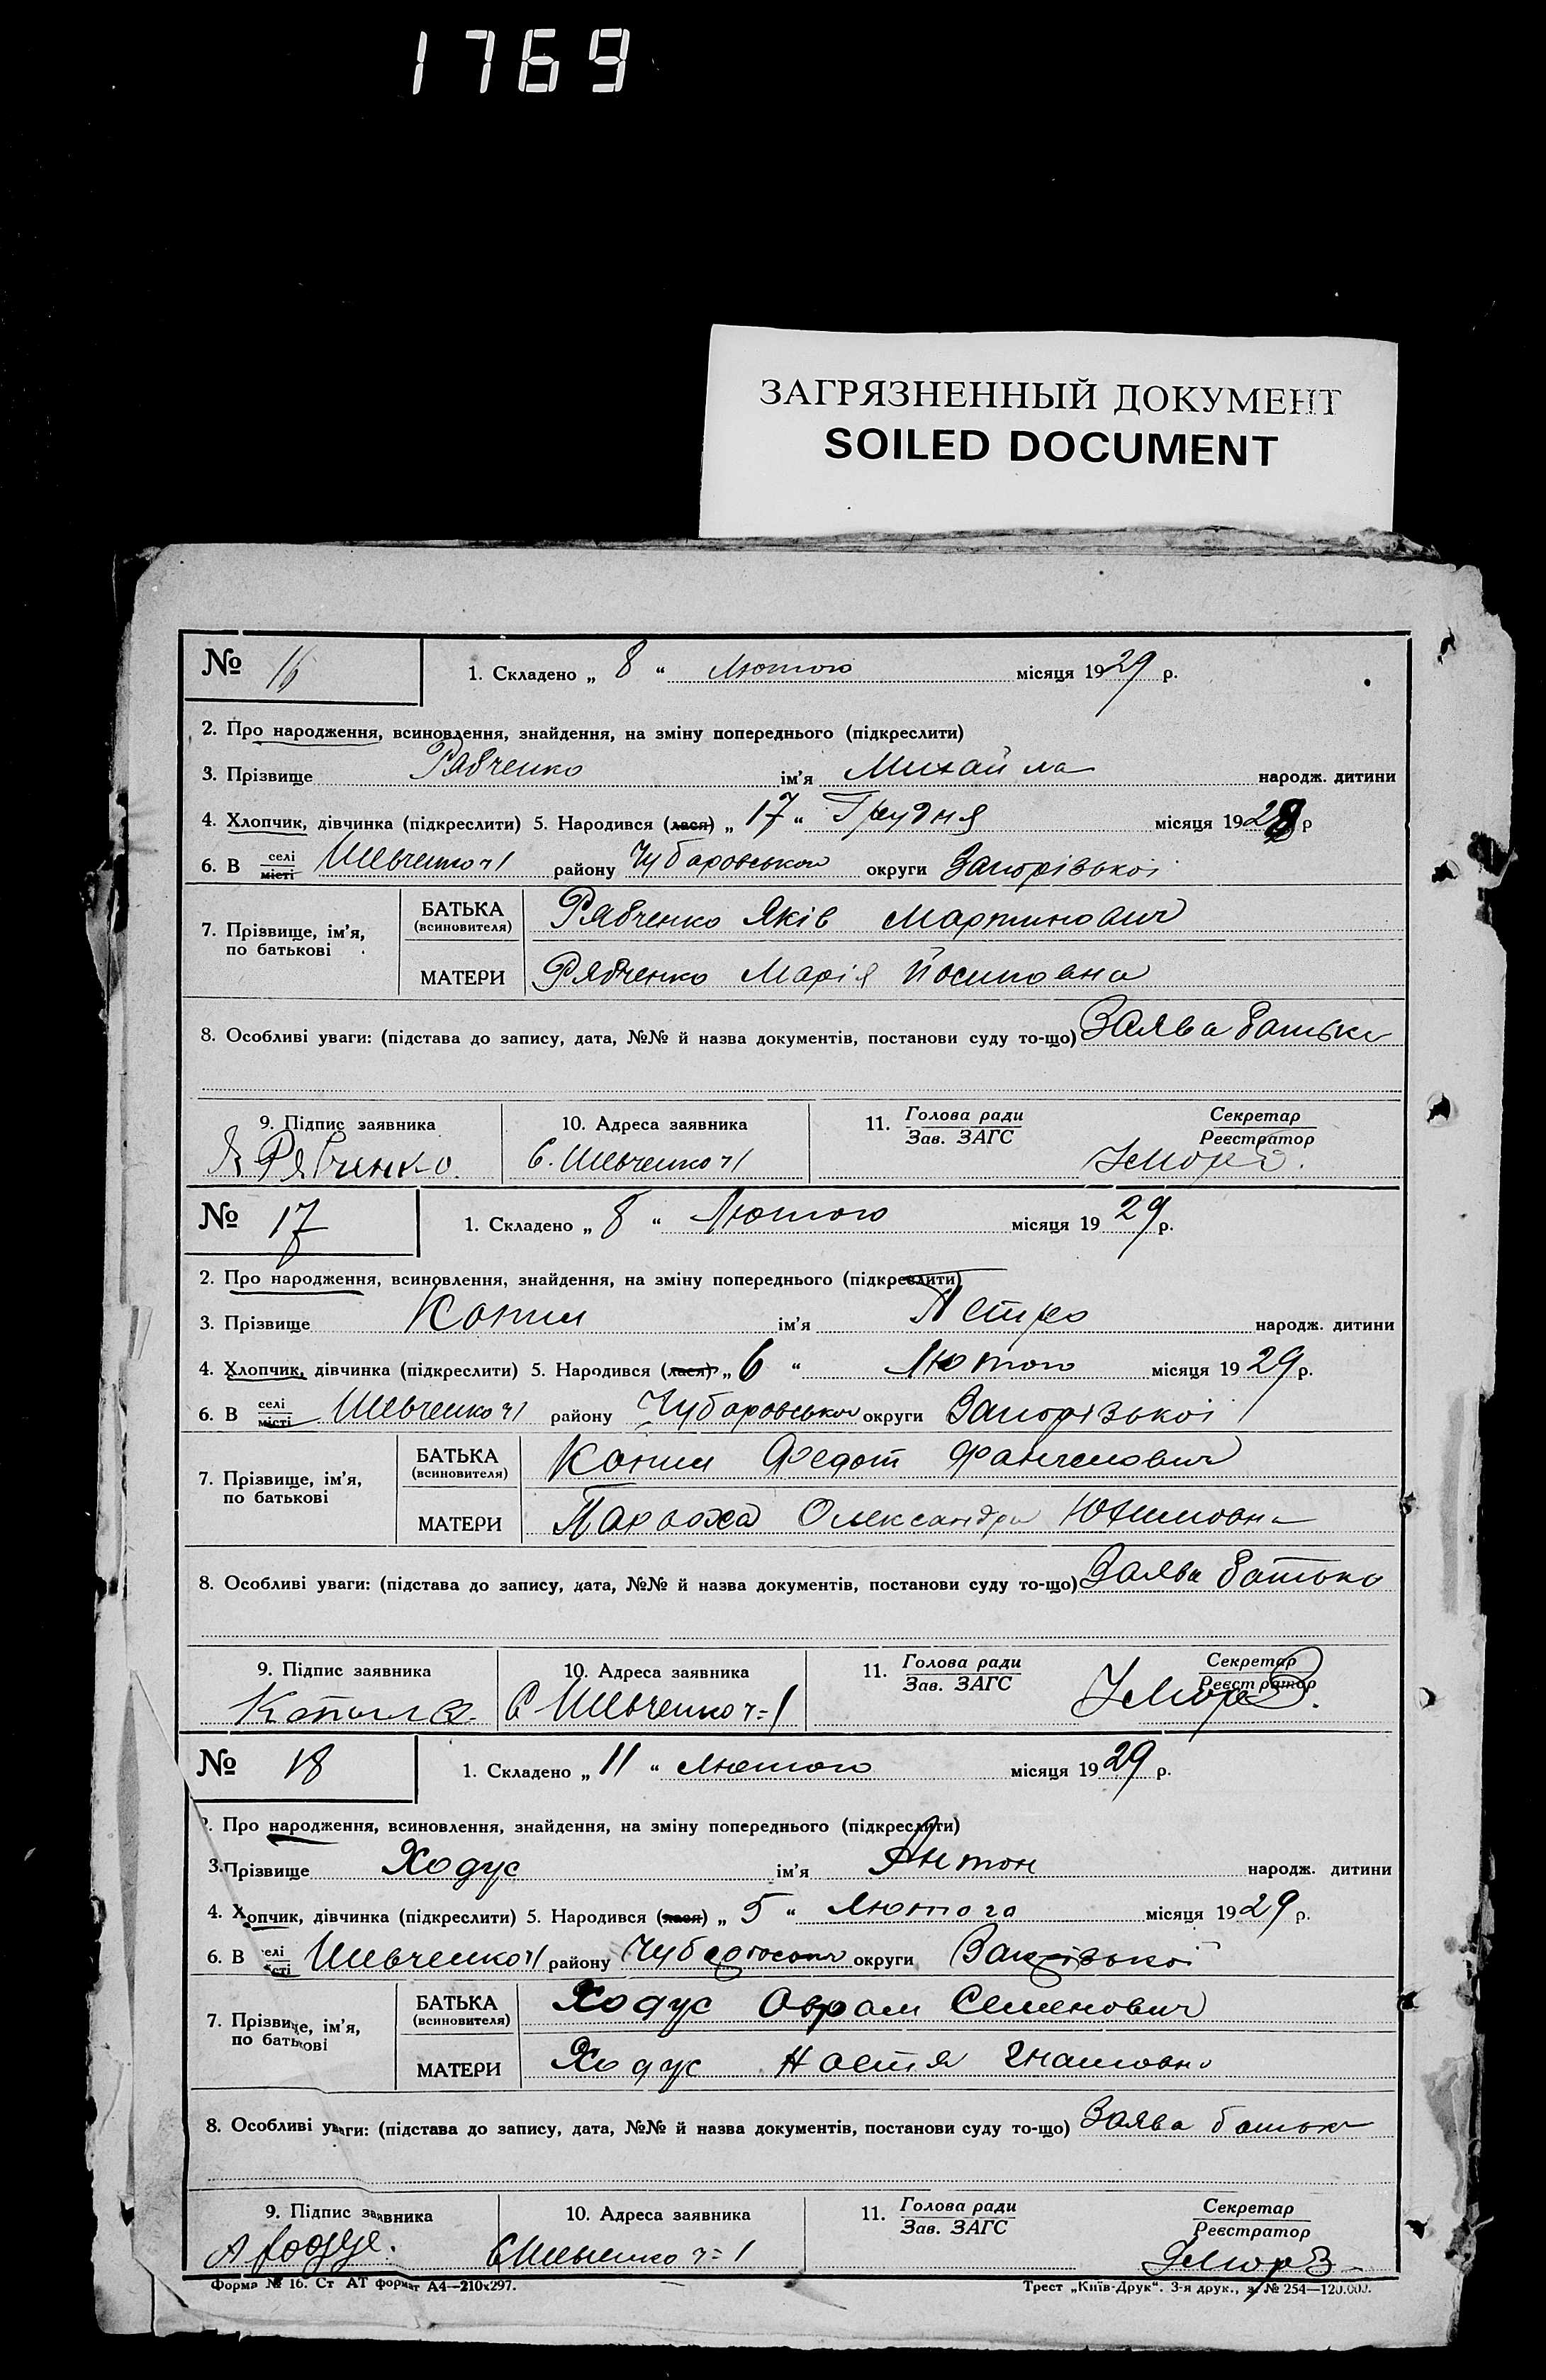 1769
ЗАГРЯЗНЕННЫЙ ДОКУМЕНТ
SOILED DOCUMENT
№ 16 1. Складено „ 8 “ Лютого місяця 1929 р.
2. Про народження, всиновлення, знайдення, на зміну попереднього (підкреслити)
3. Прізвище Рябченко ім'я Михайла народж. дитини
4. Хлопчик, дівчинка (підкреслити) 5. Народився (лася) „ 17 “ Грудня місяця 1928 р
6. В селі місті Шевченко №1 району Чубаровського округи Запорізької
7. Прізвище, ім'я, по батькові БАТЬКА (всиновителя) Рябченко Яків Мартинович
МАТЕРИ Рябченко Марія Йосиповна
8. Особливі уваги: (підстава до запису, дата, №№ й назва документів, постанови суду то-що) Заява батька
9. Підпис заявника 10. Адреса заявника 11. Голова ради Зав. ЗАГС Секретар Реєстратор
Я Рябченко. с. Шевченко №1
№ 17 1. Складено „ 8 “ Лютого місяця 1929 р.
2. Про народження, всиновлення, знайдення, на зміну попереднього (підкреслити)
3. Прізвище Копил ім'я Петро народж. дитини
4. Хлопчик, дівчинка (підкреслити) 5. Народився (лася) „ 6 “ Лютого місяця 1929 р.
6. В селі місті Шевченко №1 району Чубаровського округи Запорізької
7. Прізвище, ім'я, по батькові БАТЬКА (всиновителя) Копил Федот
МАТЕРИ Олександра Юхимовна
8. Особливі уваги: (підстава до запису, дата, №№ й назва документів, постанови суду то-що) Заява батька
9. Підпис заявника 10. Адреса заявника 11. Голова ради Зав. ЗАГС Секретар Реєстратор
с Шевченко №1
№ 18 1. Складено „ 11 “ Лютого місяця 1929 р.
2. Про народження, всиновлення, знайдення, на зміну попереднього (підкреслити)
3. Прізвище Ходус ім'я Антон народж. дитини
4. Хлопчик, дівчинка (підкреслити) 5. Народився (лася) „ 5 “ Лютого місяця 1929 р.
6. В селі місті Шевченко №1 району Чубаровського округи Запорізької
7. Прізвище, ім'я, по батькові БАТЬКА (всиновителя) Ходус Оврам Семенович
МАТЕРИ Ходус Настя Гнатовна
8. Особливі уваги: (підстава до запису, дата, №№ й назва документів, постанови суду то-що) Заява батька
9. Підпис заявника 10. Адреса заявника 11. Голова ради Зав. ЗАГС Секретар Реєстратор
с Шевченко №1
Форма № 16. Ст АТ формат А4—210х297. Трест „Київ-Друк“. 3-я друк., з. № 254—120.000.